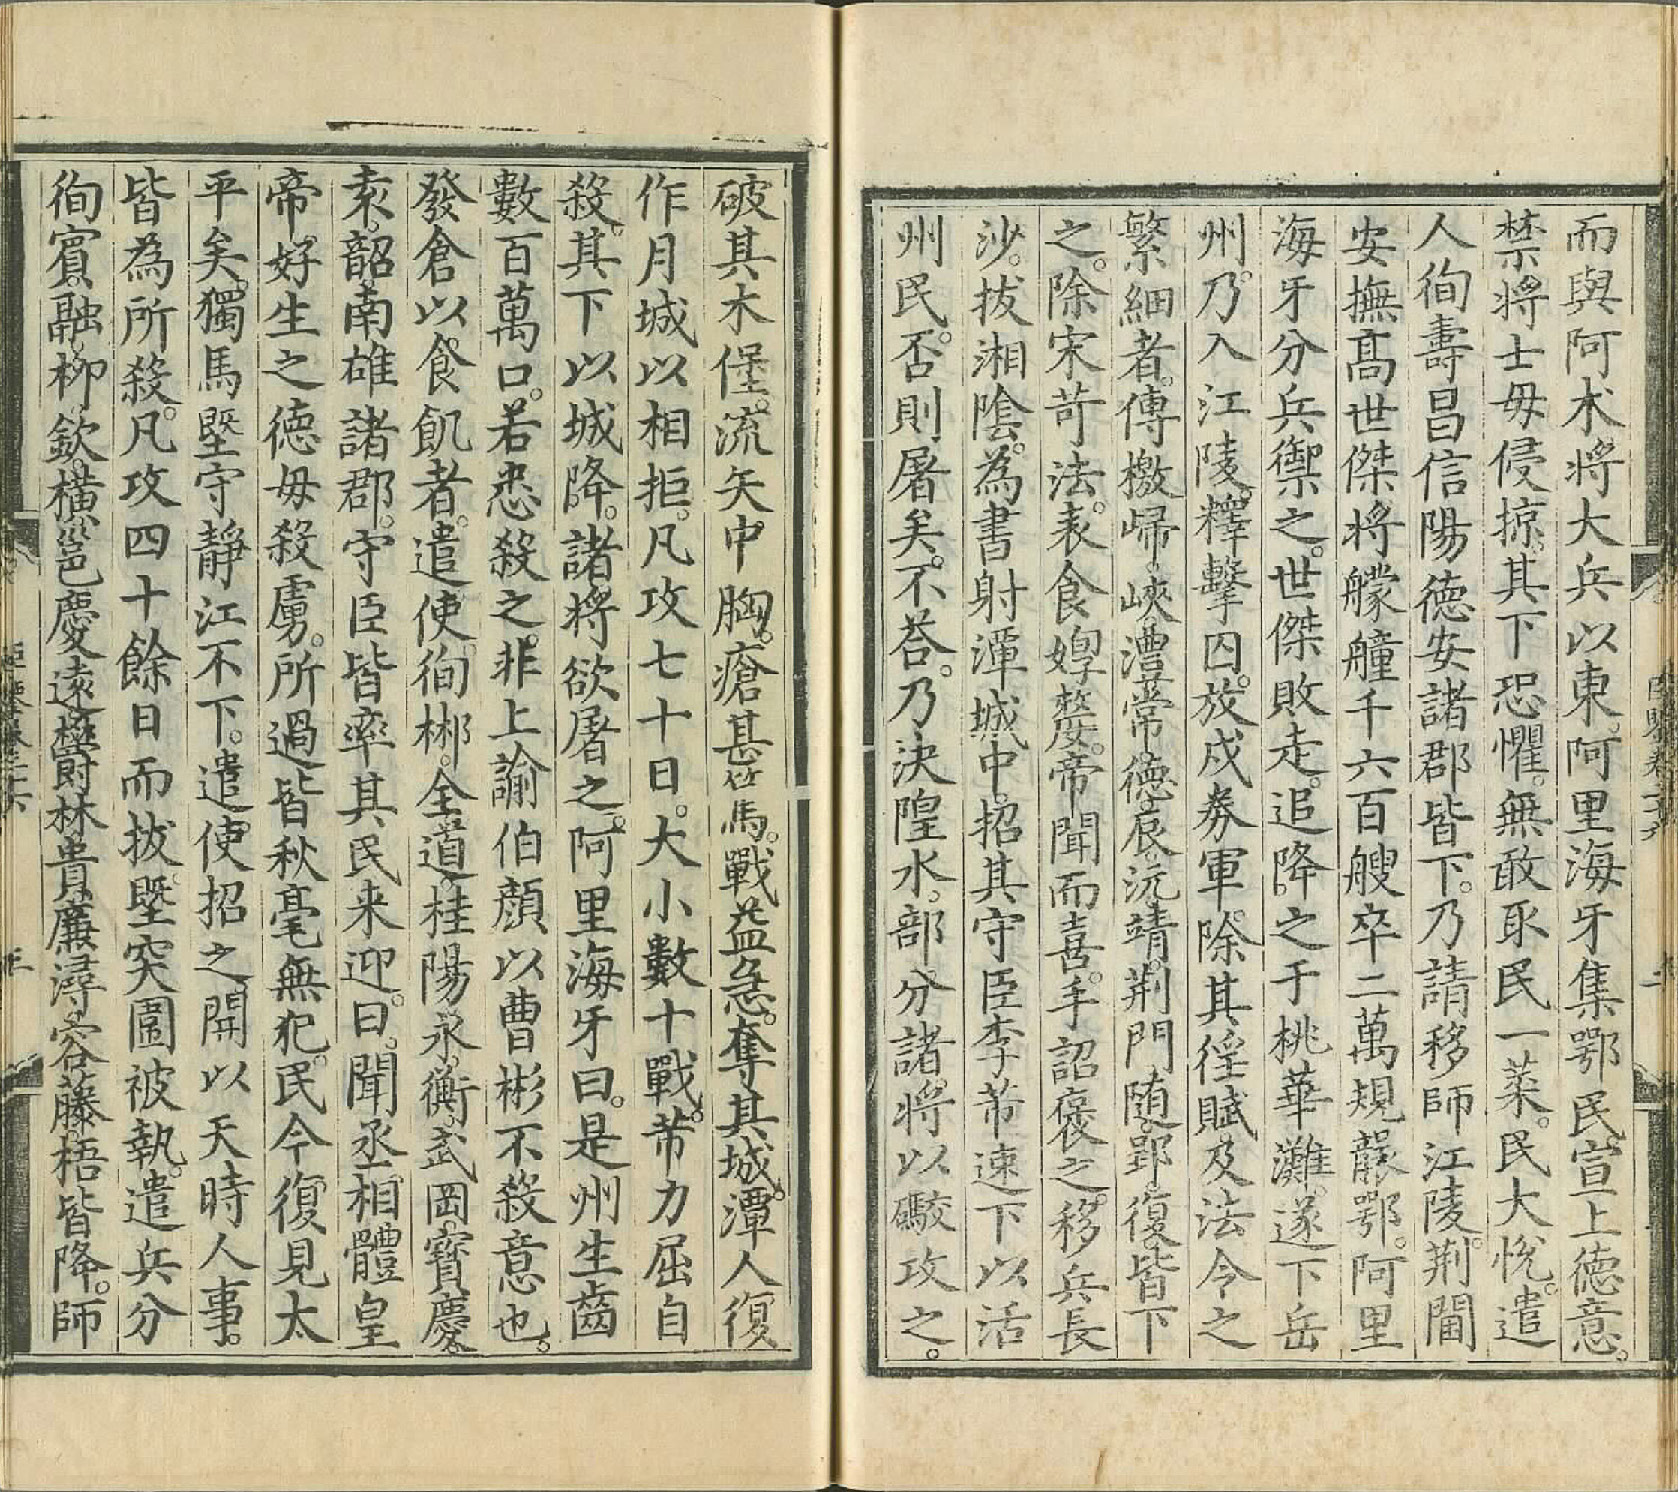 而與阿术將大兵以東阿里海牙集鄂民宣上德意。
禁將士毋侵掠。其下恐懼。無敢取民一菜。民大悅。遣
人徇壽昌信陽德安諸郡皆下。乃請移師江陵。荆閫
安撫髙世傑將艨艟千六百艘卒二萬規襲鄂。阿里
海牙分兵禦之。世傑敗走。追降之于桃華灘。遂下岳
州。乃入江陵。釋繫囚。放戍券軍。除其徭賦及法令之
繁細者。傳檄歸峽澧常德辰沅靖。荆門隨郢復皆下
之。除宋苛法。表食嫠。帝聞而喜。手詔褒之。移兵長
沙。拔湘隂。為書射潭城中。招其守臣李芾速下以活
州民。否則屠矣。不荅。乃決隍水。部分諸將以礮攻之。
破其木堡。流矢中胸。瘡甚。戰益急。奪其城。潭人復
作月城。以相拒。凡攻七十日。大小數十戰。芾力屈自
殺。其下以城降。諸將欲屠之。阿里海牙曰。是州生齒
數百萬口。若悉殺之。非上諭伯顔以曹彬不殺意也。
發倉以食飢者。遣使徇郴。全道桂陽永衡武岡寳慶
袁韶南雄諸郡。守臣皆率其民来迎。曰。聞丞相體皇
帝。好生之德毋殺虜。所過皆秋毫無犯。民今復見太
平矣。獨馬塈守靜江不下。遣使招之。開以天時人事。
皆為所殺。凡攻四十餘日而拔。塈突圍被執。遣兵分
徇賓融柳欽橫邕慶遠欝林貴廉潯容藤梧皆降。師